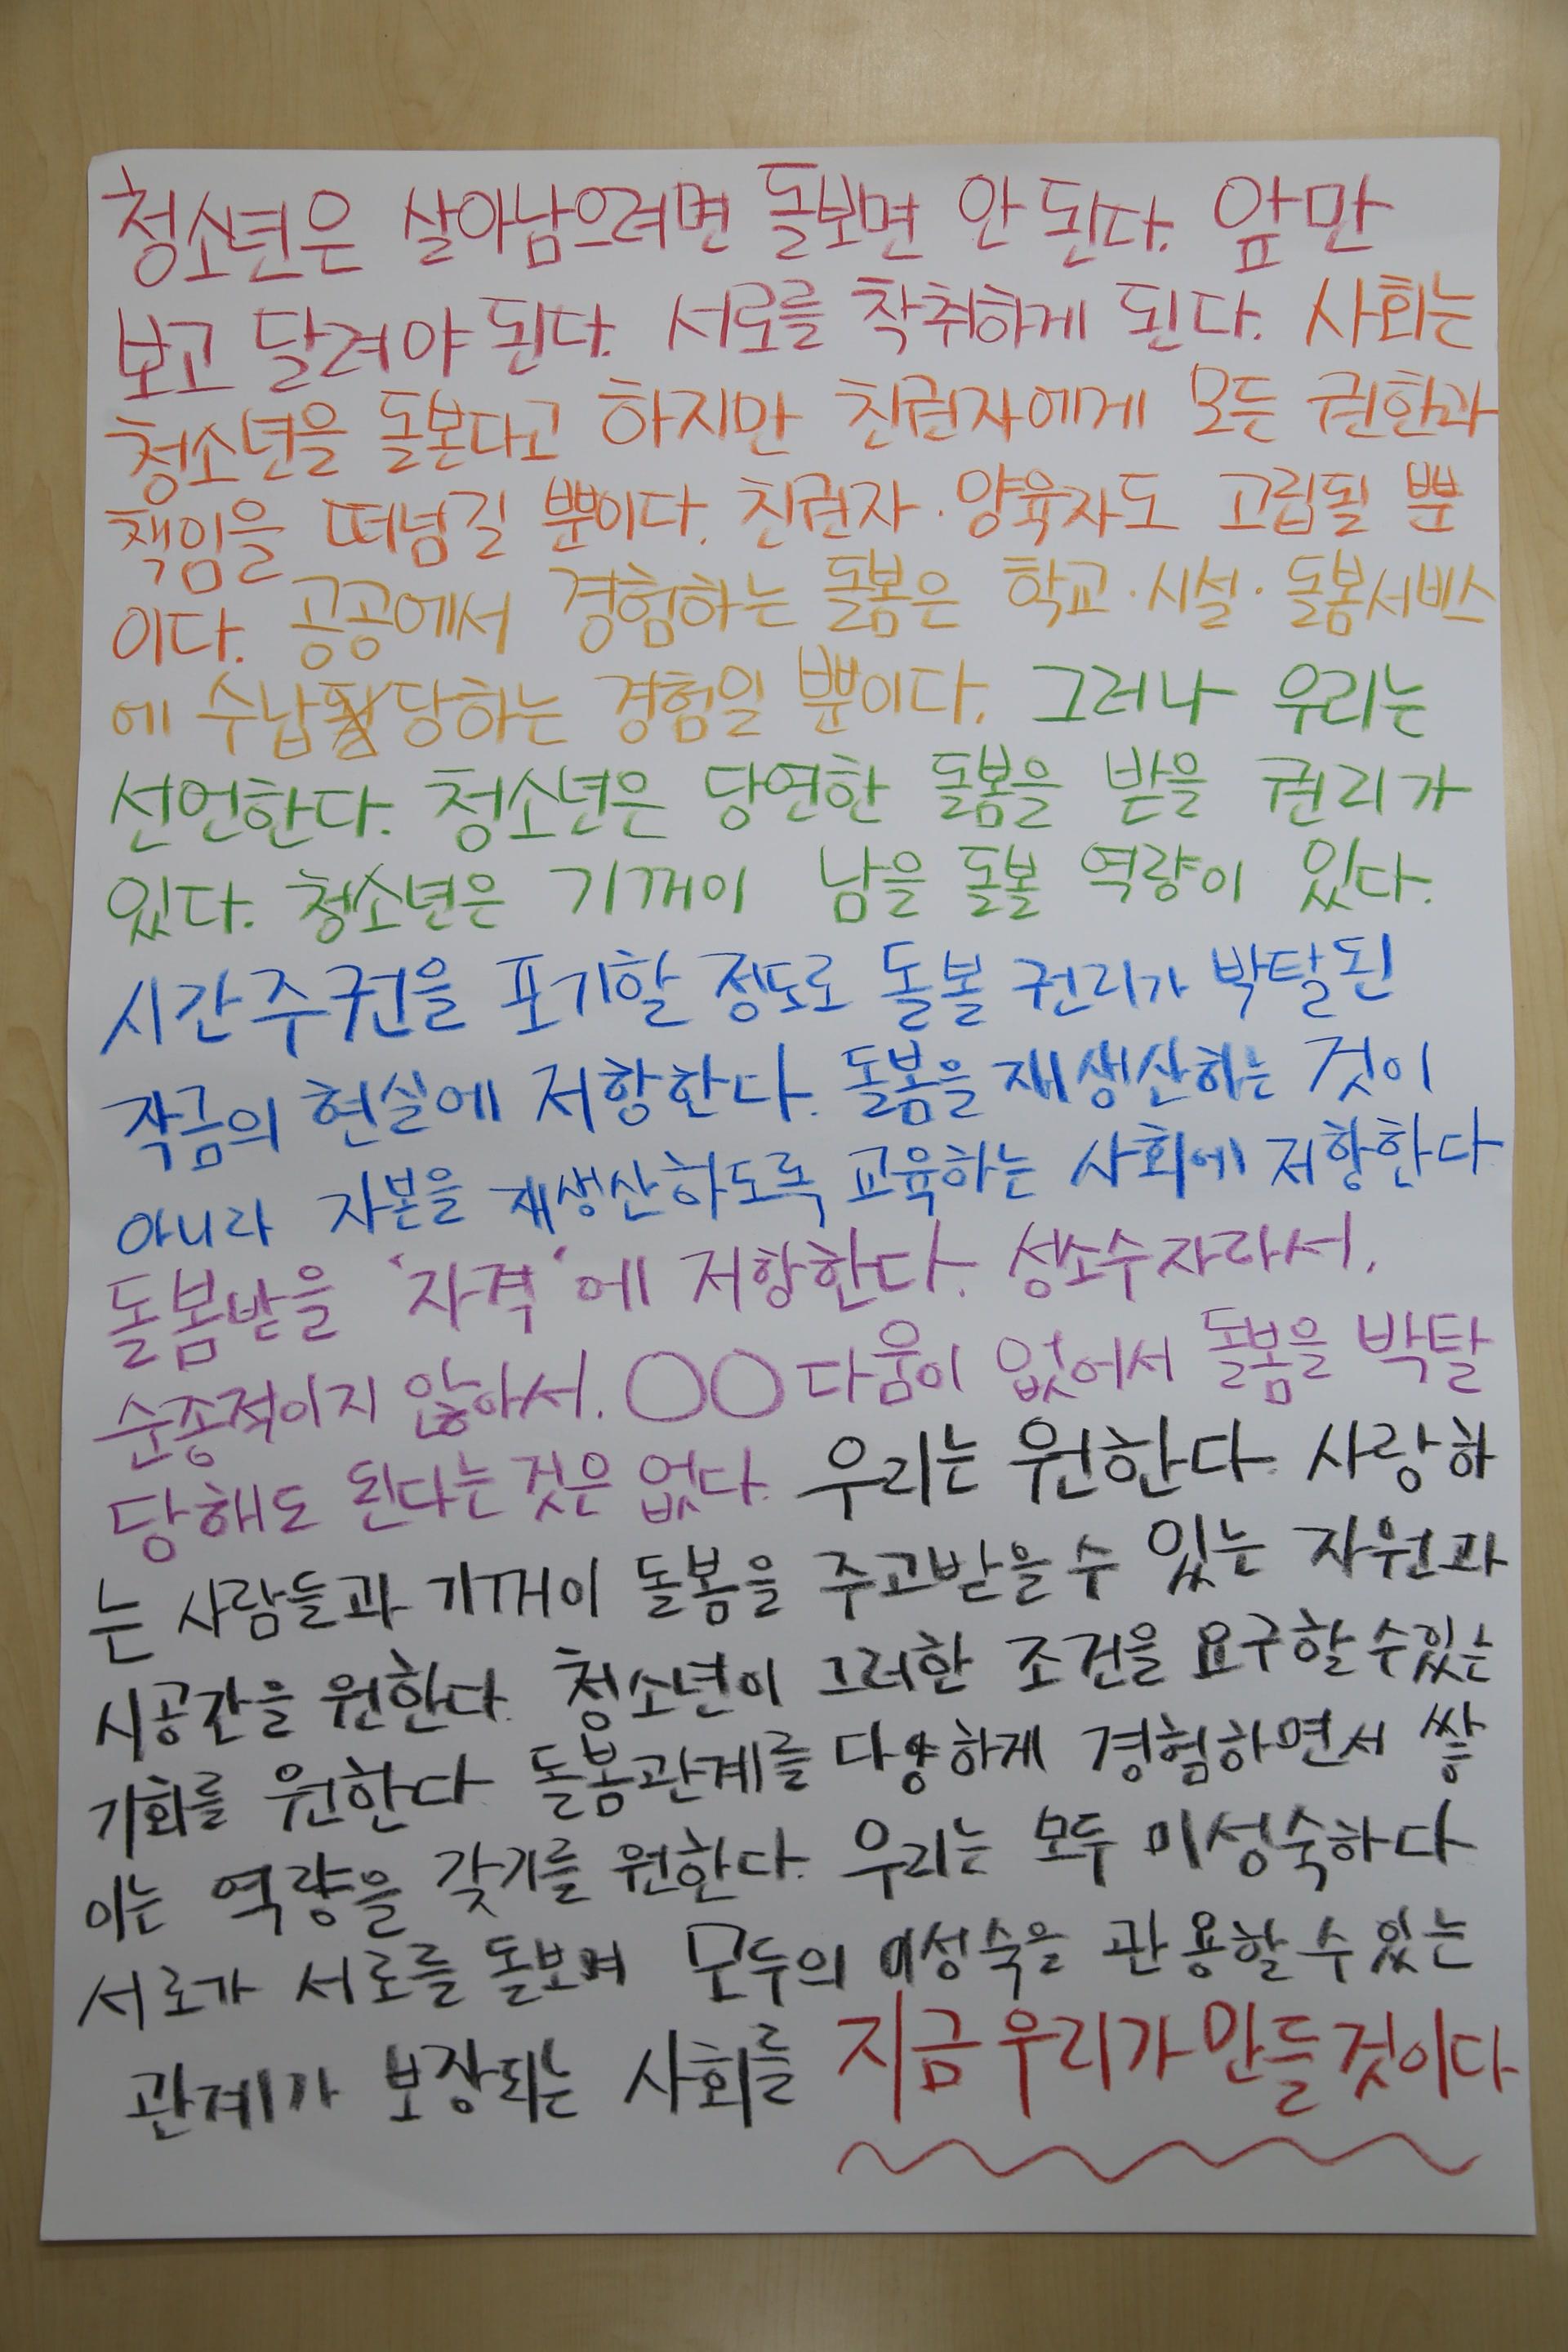 청소년은 살아남으려면 돌보면 안 된다. 앞만
보고 달려야 된다. 서로를 착취하게 된다. 사회는
청소년을 돌본다고 하지만 친권자에게 모든 권한과
책임을 떠넘길 뿐이다. 친권자·양육자도 고립될 뿐
이다. 공공에서 경험하는 돌봄은 학교·시설·돌봄서비스
에 수납당하는 경험일 뿐이다. 그러나 우리는
선언한다. 청소년은 당연한 돌봄을 받을 권리가
있다. 청소년은 기꺼이 남을 돌볼 역량이 있다.
시간주권을 포기할 정도로 돌볼 권리가 박탈된
작금의 현실에 저항한다. 돌봄을 재생산하는 것이
아니라 자본을 재생산하도록 교육하는 사회에 저항한다
돌봄받을 '자격'에 저항한다. 성소수자라서,
순종적이지 않아서, ○○다움이 없어서 돌봄을 박탈
당해도 된다는 것은 없다. 우리는 원한다. 사랑하
는 사람들과 기꺼이 돌봄을 주고받을 수 있는 자원과
시공간을 원한다. 청소년이 그러한 조건을 요구할 수 있는
기회를 원한다. 돌봄관계를 다양하게 경험하면서 쌓
이는 역량을 갖기를 원한다. 우리는 모두 미성숙하다
서로가 서로를 돌보며 모두의 미성숙을 관용할 수 있는
관계가 보장되는 사회를 지금 우리가 만들 것이다